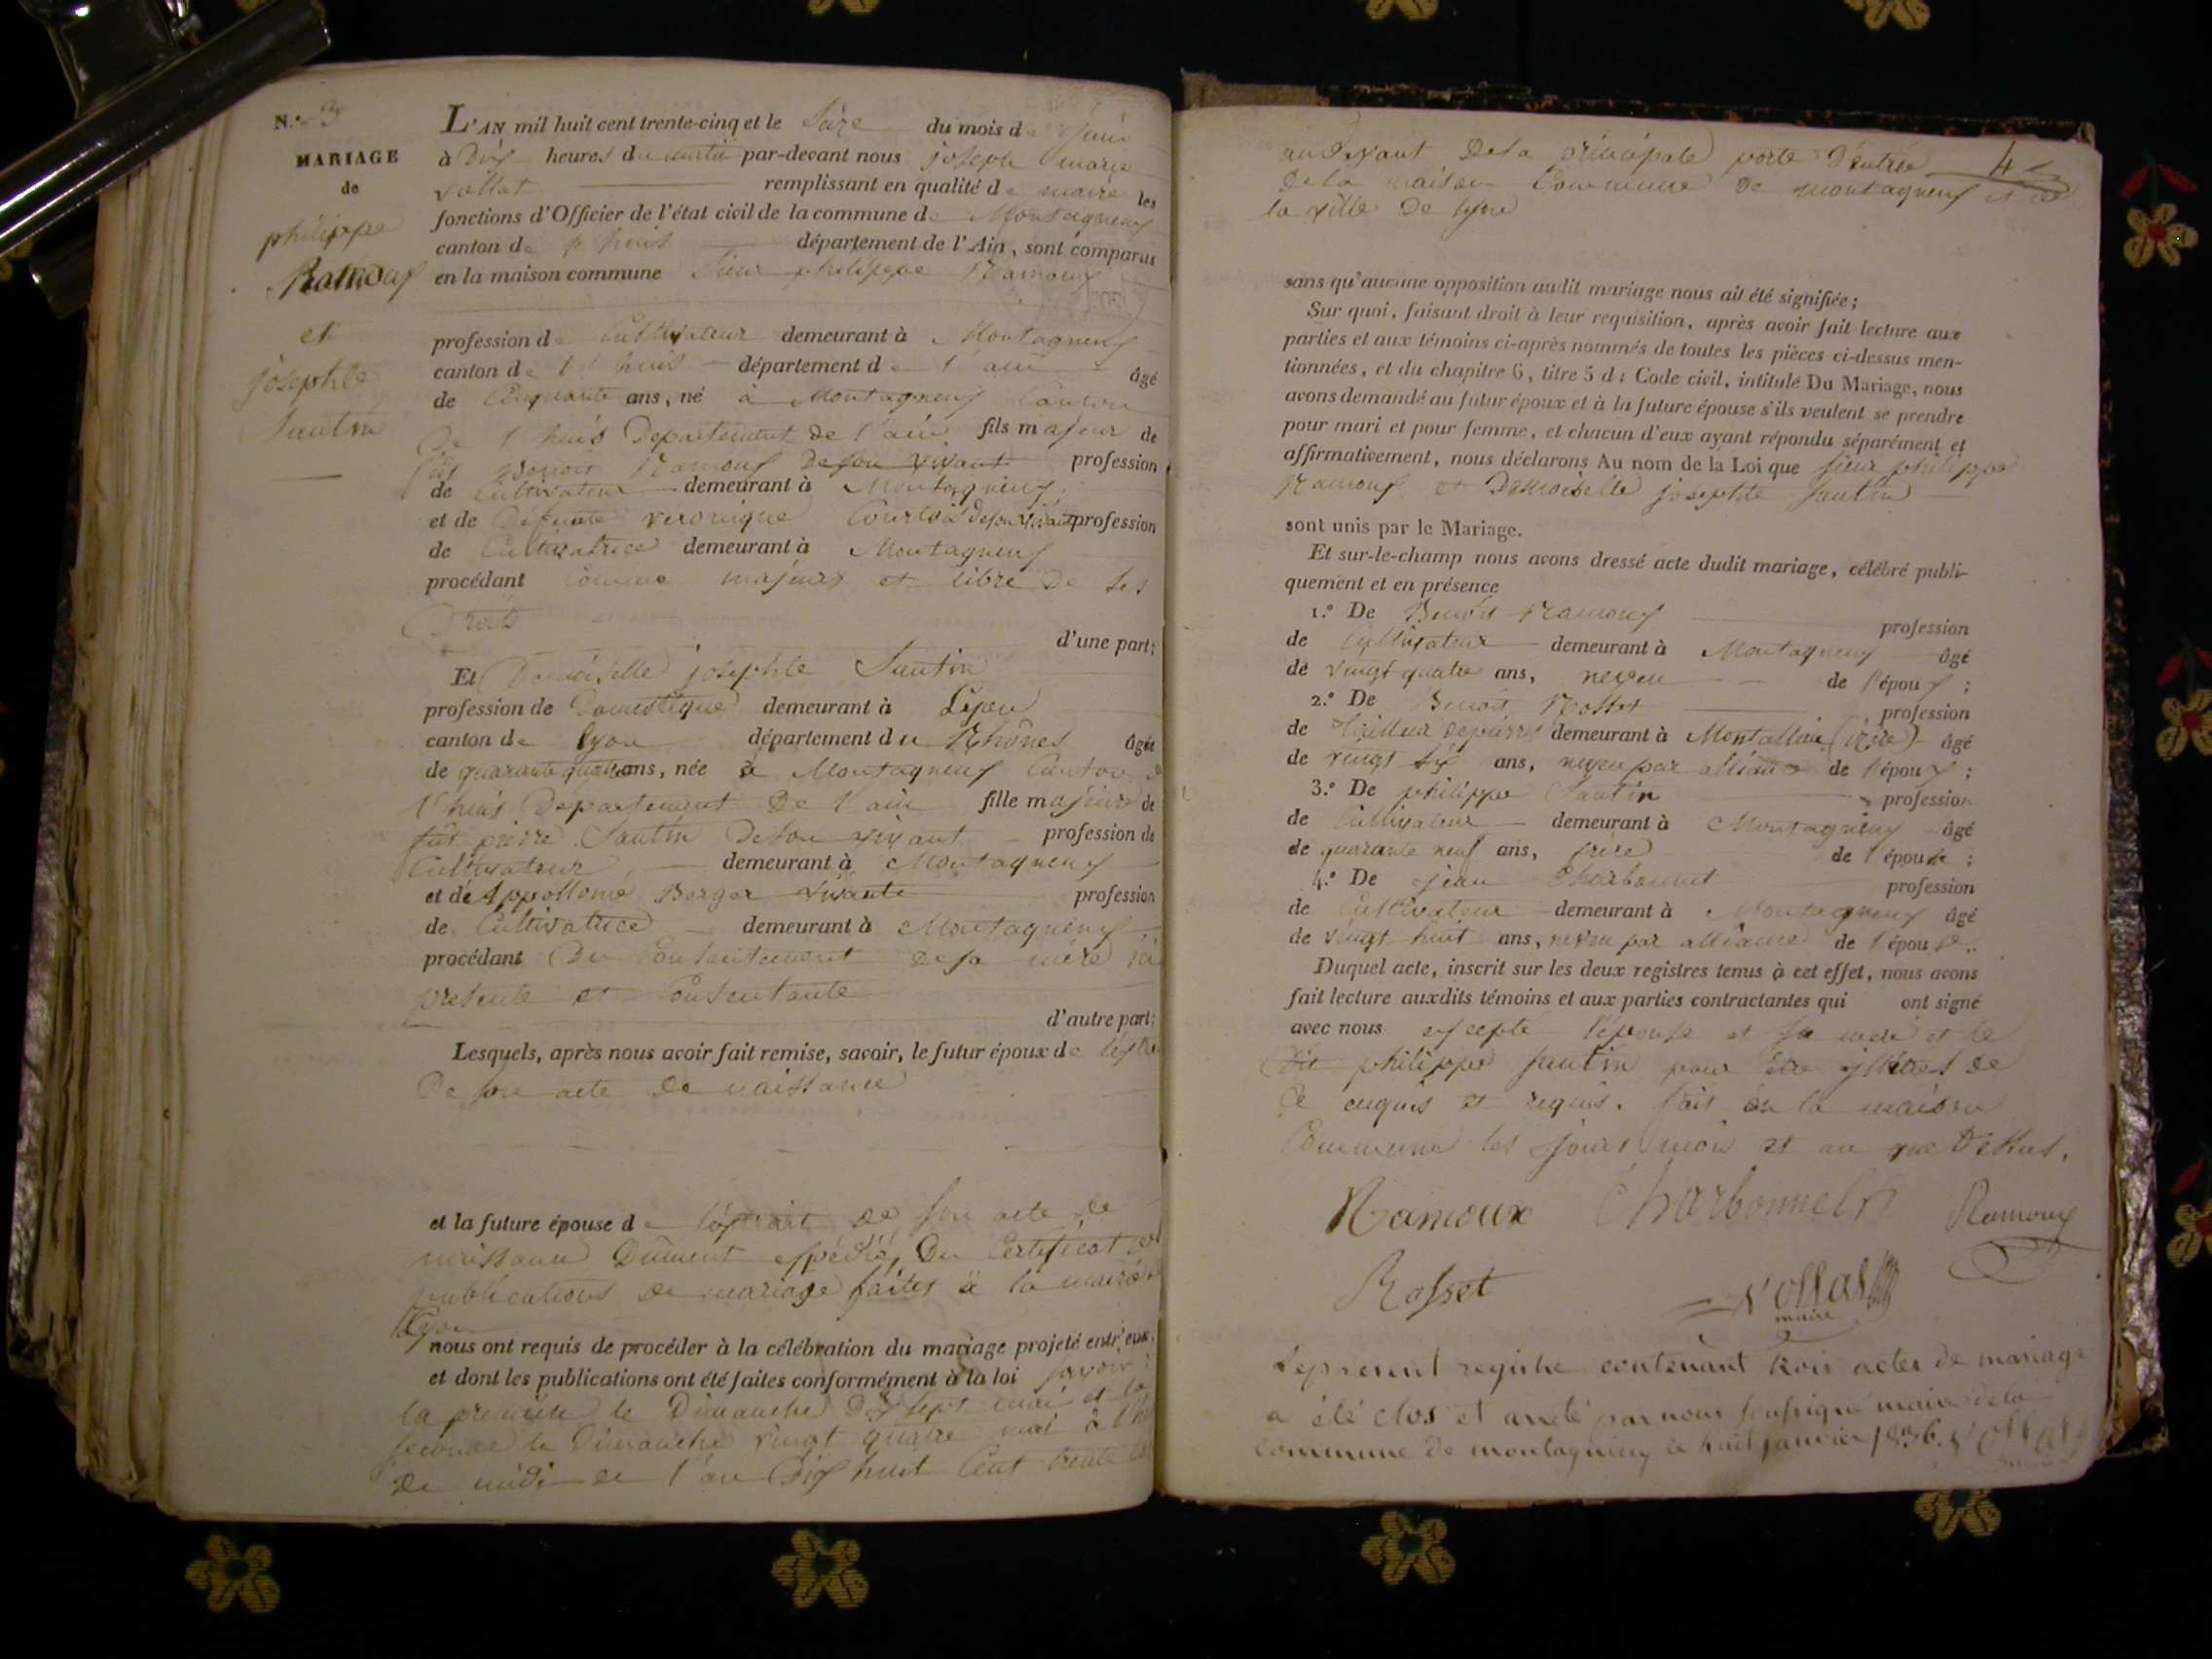 N.° 3
MARIAGE
de
philippe
Ramoux
et
josephte
Sautin
L'AN mil huit cent trente-cinq et le Seize du mois de Juin
à Dix heures du matin par-devant nous joseph marie
vollat remplissant en qualité de maire les
fonctions d'Officier de l'état civil de la commune de Montagneux
canton de l'huis département de l'Ain, sont comparus
en la maison commune Sieur philippe Ramoux
profession de Cultivateur demeurant à Montagneux
canton de l'huis département de l'ain âgé
de Cinquante ans, né à Montagneux Canton
De l'huis Departement de l'ain fils majeur de
Benoit Ramoux De son vivant profession
de Cultivateur demeurant à Montagneux
et de Defunte veronique Courtois De son vivant profession
de Cultivatrice demeurant à Montagneux
procédant comme majeur et libre De Ses
Droits
d'une part;
Et Demoiselle josephte Sautin
profession de Domestique demeurant à Lyon
canton de Lyon département du Rhônes âgée
de quarante quatre ans, née à Montagneux Canton de
l'huis Departement De l'ain fille majeure de
fût pierre Sautin De son vivant profession de
Cultivateur demeurant à Montagneux
et de Appollonie Berger vivante profession
de Cultivatrice demeurant à Montagneux
procédant Du Consentement De sa mère ici
presente et Consentante
d'autre part;
Lesquels, après nous avoir fait remise, savoir, le futur époux de
De son acte De naissance
et la future épouse de l'extrait De son acte de
naissance Dûment expédié, Du Certificat de
publications De mariage faites à la mairie de
Lyon
nous ont requis de procéder à la célébration du mariage projeté entr'eux,
et dont les publications ont été faites conformément à la loi savoir :
la première le Dimanche Dix Sept mai et la
seconde le Dimanche vingt quatre mai à l'heure
De midi De l'an Dix huit Cent trente
au Devant De la principale porte D'entrée 4
De la maison Commune De montagneux et de
la ville De lyon
sans qu'aucune opposition audit mariage nous ait été signifiée;
Sur quoi, faisant droit à leur requisition, après avoir fait lecture aux
parties et aux témoins ci-après nommés de toutes les pièces ci-dessus men-
tionnées, et du chapitre 6, titre 5 du Code civil, intitulé Du Mariage, nous
avons demandé au futur époux et à la future épouse s'ils veulent se prendre
pour mari et pour femme, et chacun d'eux ayant répondu séparément et
affirmativement, nous déclarons Au nom de la Loi que Sieur philippe
Ramoux et Demoiselle josephte Sautin
sont unis par le Mariage.
Et sur-le-champ nous avons dressé acte dudit mariage, célébré publi-
quement et en présence
1.° De Benoit Ramoux profession
de Cultivateur demeurant à Montagneux âgé
de vingt quatre ans, neveu de l'époux ;
2.° De Benoit Rosset profession
de Tailleur de pierres demeurant à Montallieu (izère) âgé
de vingt Six ans, neveu par alliance de l'époux ;
3.° De philippe Sautin profession
de Cultivateur demeurant à Montagneux âgé
de quarante neuf ans, frère de l'épouse ;
4.° De jean Charbonnet profession
de Cultivateur demeurant à Montagneux âgé
de vingt huit ans, neveu par alliance de l'épouse.
Duquel acte, inscrit sur les deux registres tenus à cet effet, nous avons
fait lecture auxdits témoins et aux parties contractantes qui ont signé
avec nous excepté l'épouse et sa mère et le
Dit philippe Sautin pour être illétrés de
Ce enquis et requis. fait en la maison
Commune les jours mois et an que Dessus.
Ramoux Charbonnet Ramoux
Rosset Vollat
maire
Le present registre contenant trois actes de mariage
a été clos et arreté par nous soussigné maire de la
commune de montagnieu le huit janvier 1836. Vollat